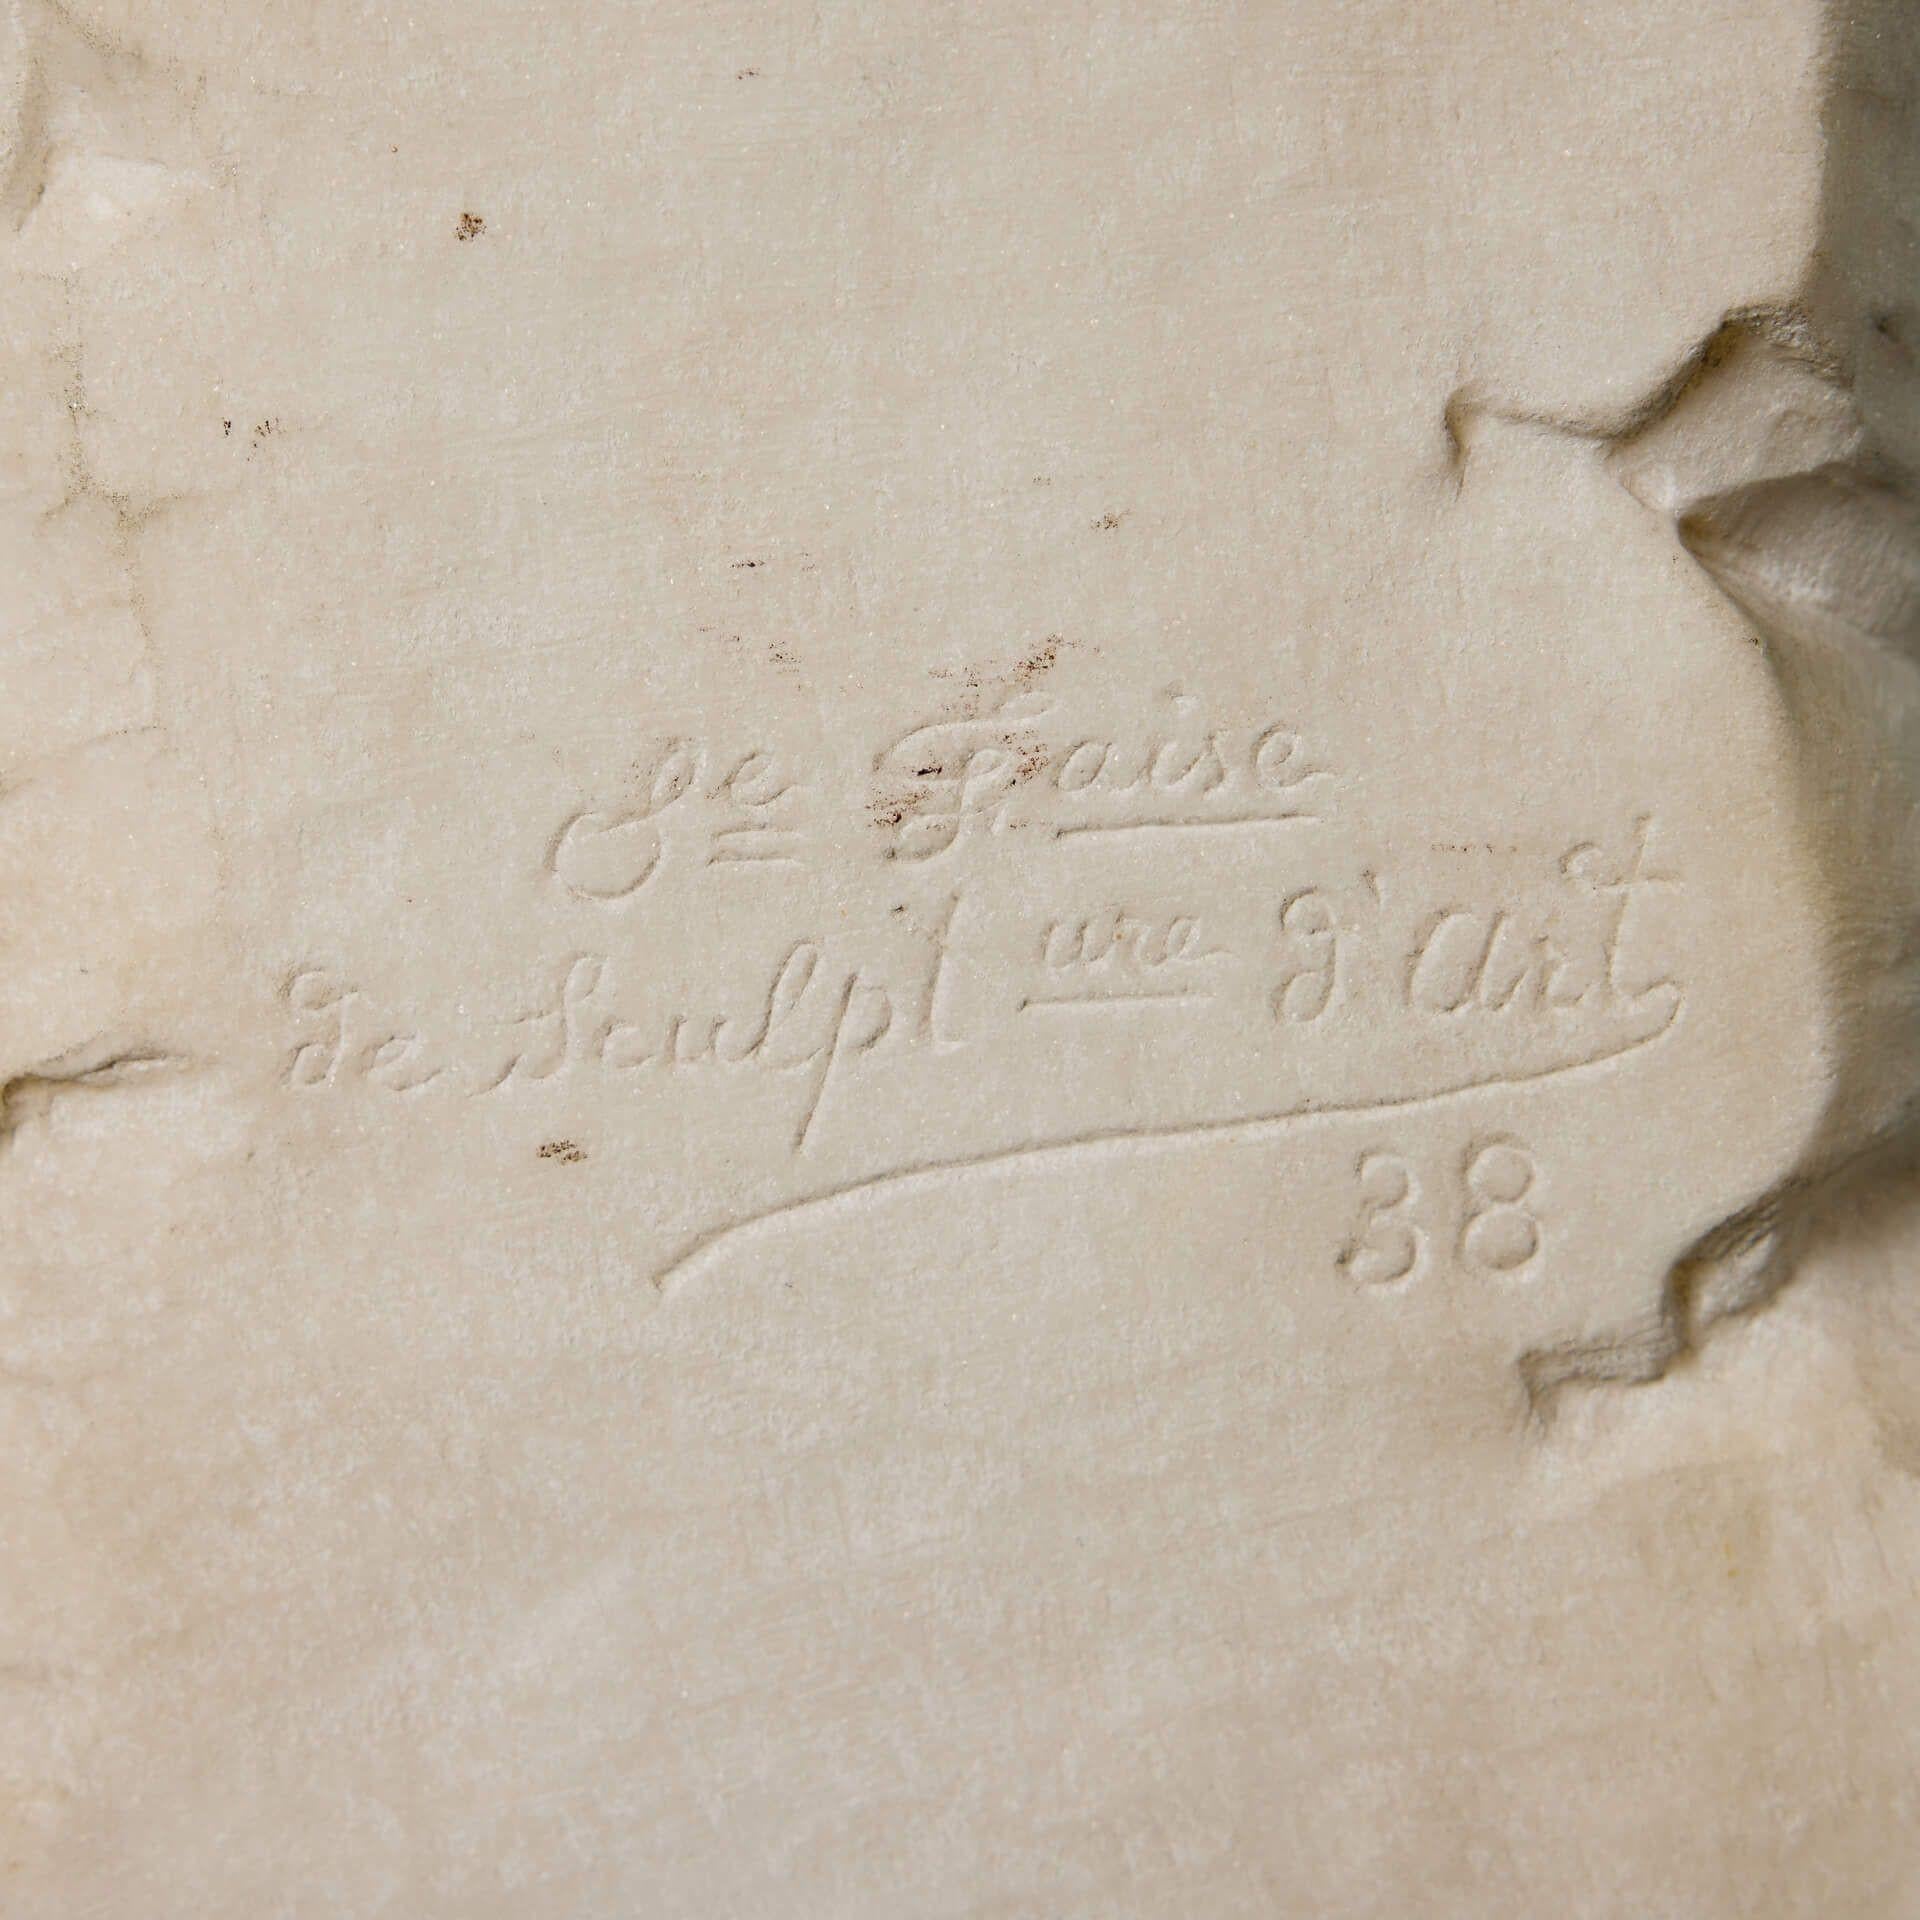 Se Fçaise
de Sculpt ure d'Art
38